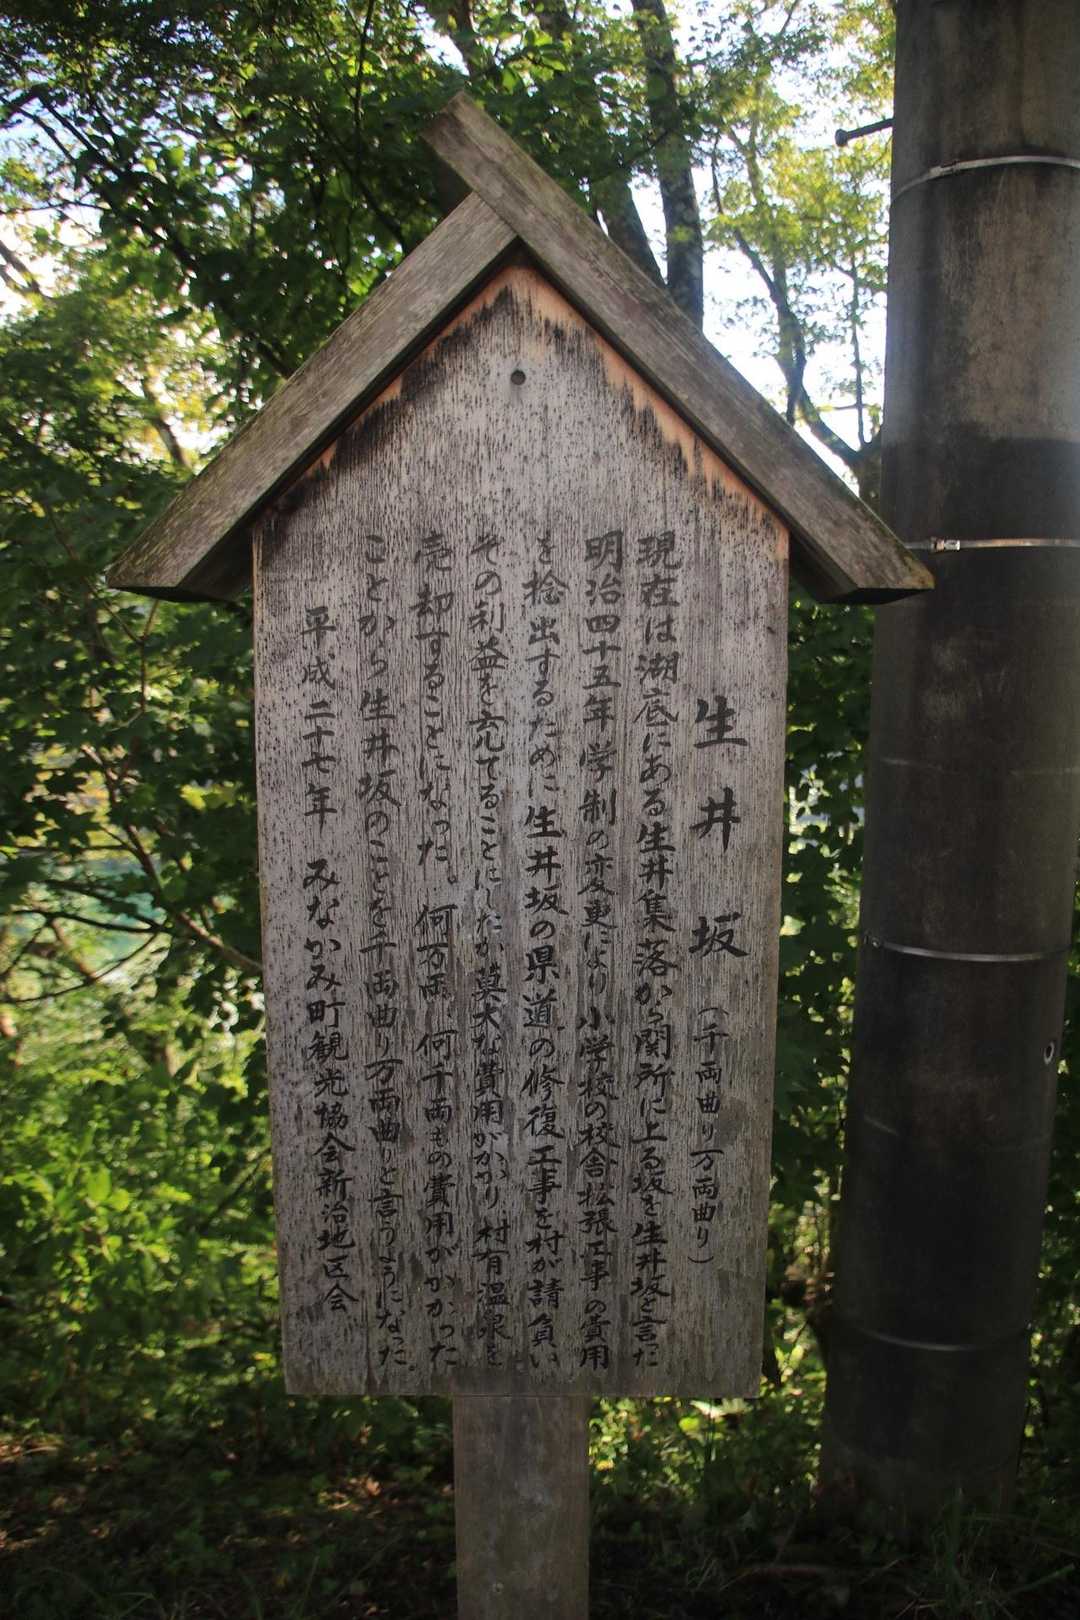 生井坂(千両曲り万両曲り)
現在は湖底にある生井集落から関所に上る坂を生井坂と言った
明治四十五年学制の変更により小学校の校舎拡張工事の費用
を捻出するために生井坂の県道の修復工事を村が請負い
その利益を充てることにしたが莫大な費用がかかり村有温泉を
売却することになった。何万両、何千両もの費用がかかった
ことから生井坂のことを千両曲り万両曲りと言うようになった。
平成二十七年 みなかみ町観光協会新治地区会